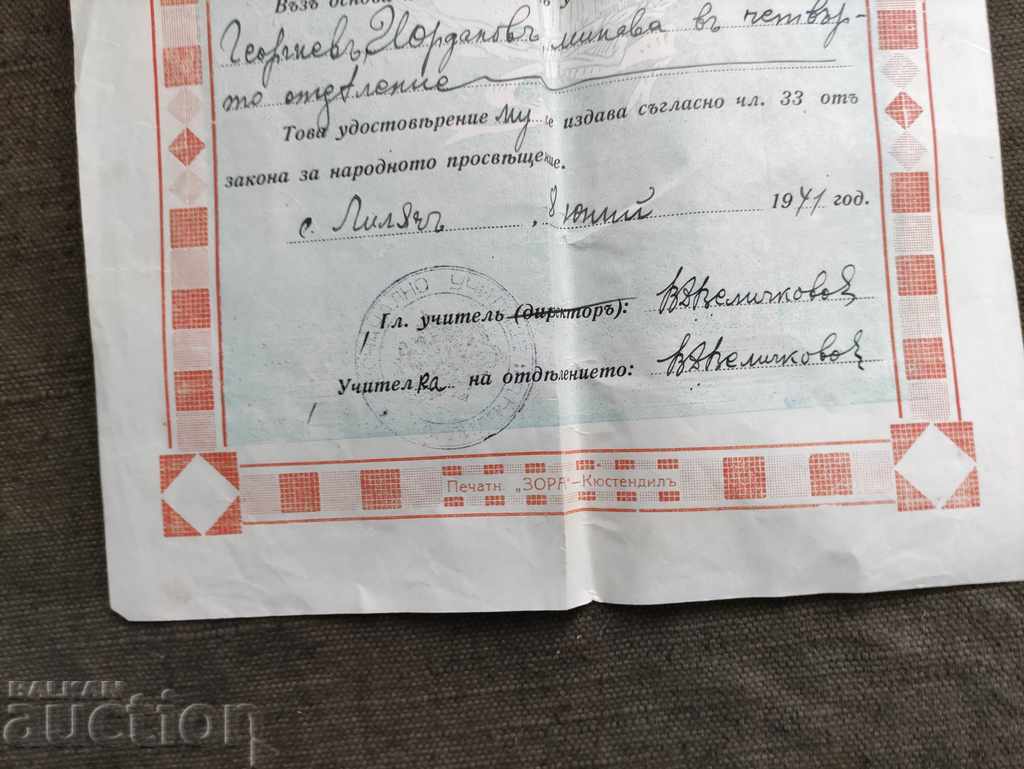 Възъ основа
Георгиевъ Йордановъ минава въ четвър-
то отдѣление
Това удостовѣрение му се издава съгласно чл. 33 отъ
закона за народното просвѣщение.
с. Лилячъ, 8 юний 1941 год.
Гл. учитель (директоръ): ВДВеличкова
Учителка на отдѣлението: ВДВеличкова
Печатн. „ЗОРА"–Кюстендилъ
BALKAN
auction